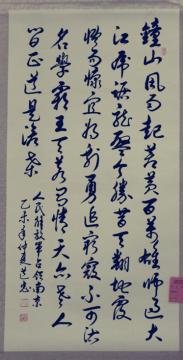 鐘山風雨起蒼黄百萬雄師過大
江虎踞龍盤今勝昔天翻地覆
慨而慷宜將剩勇追窮寇不可沽
名學霸王天若有情天亦老人
間正道是滄桑
人民解放軍占領南京
乙未年仲夏